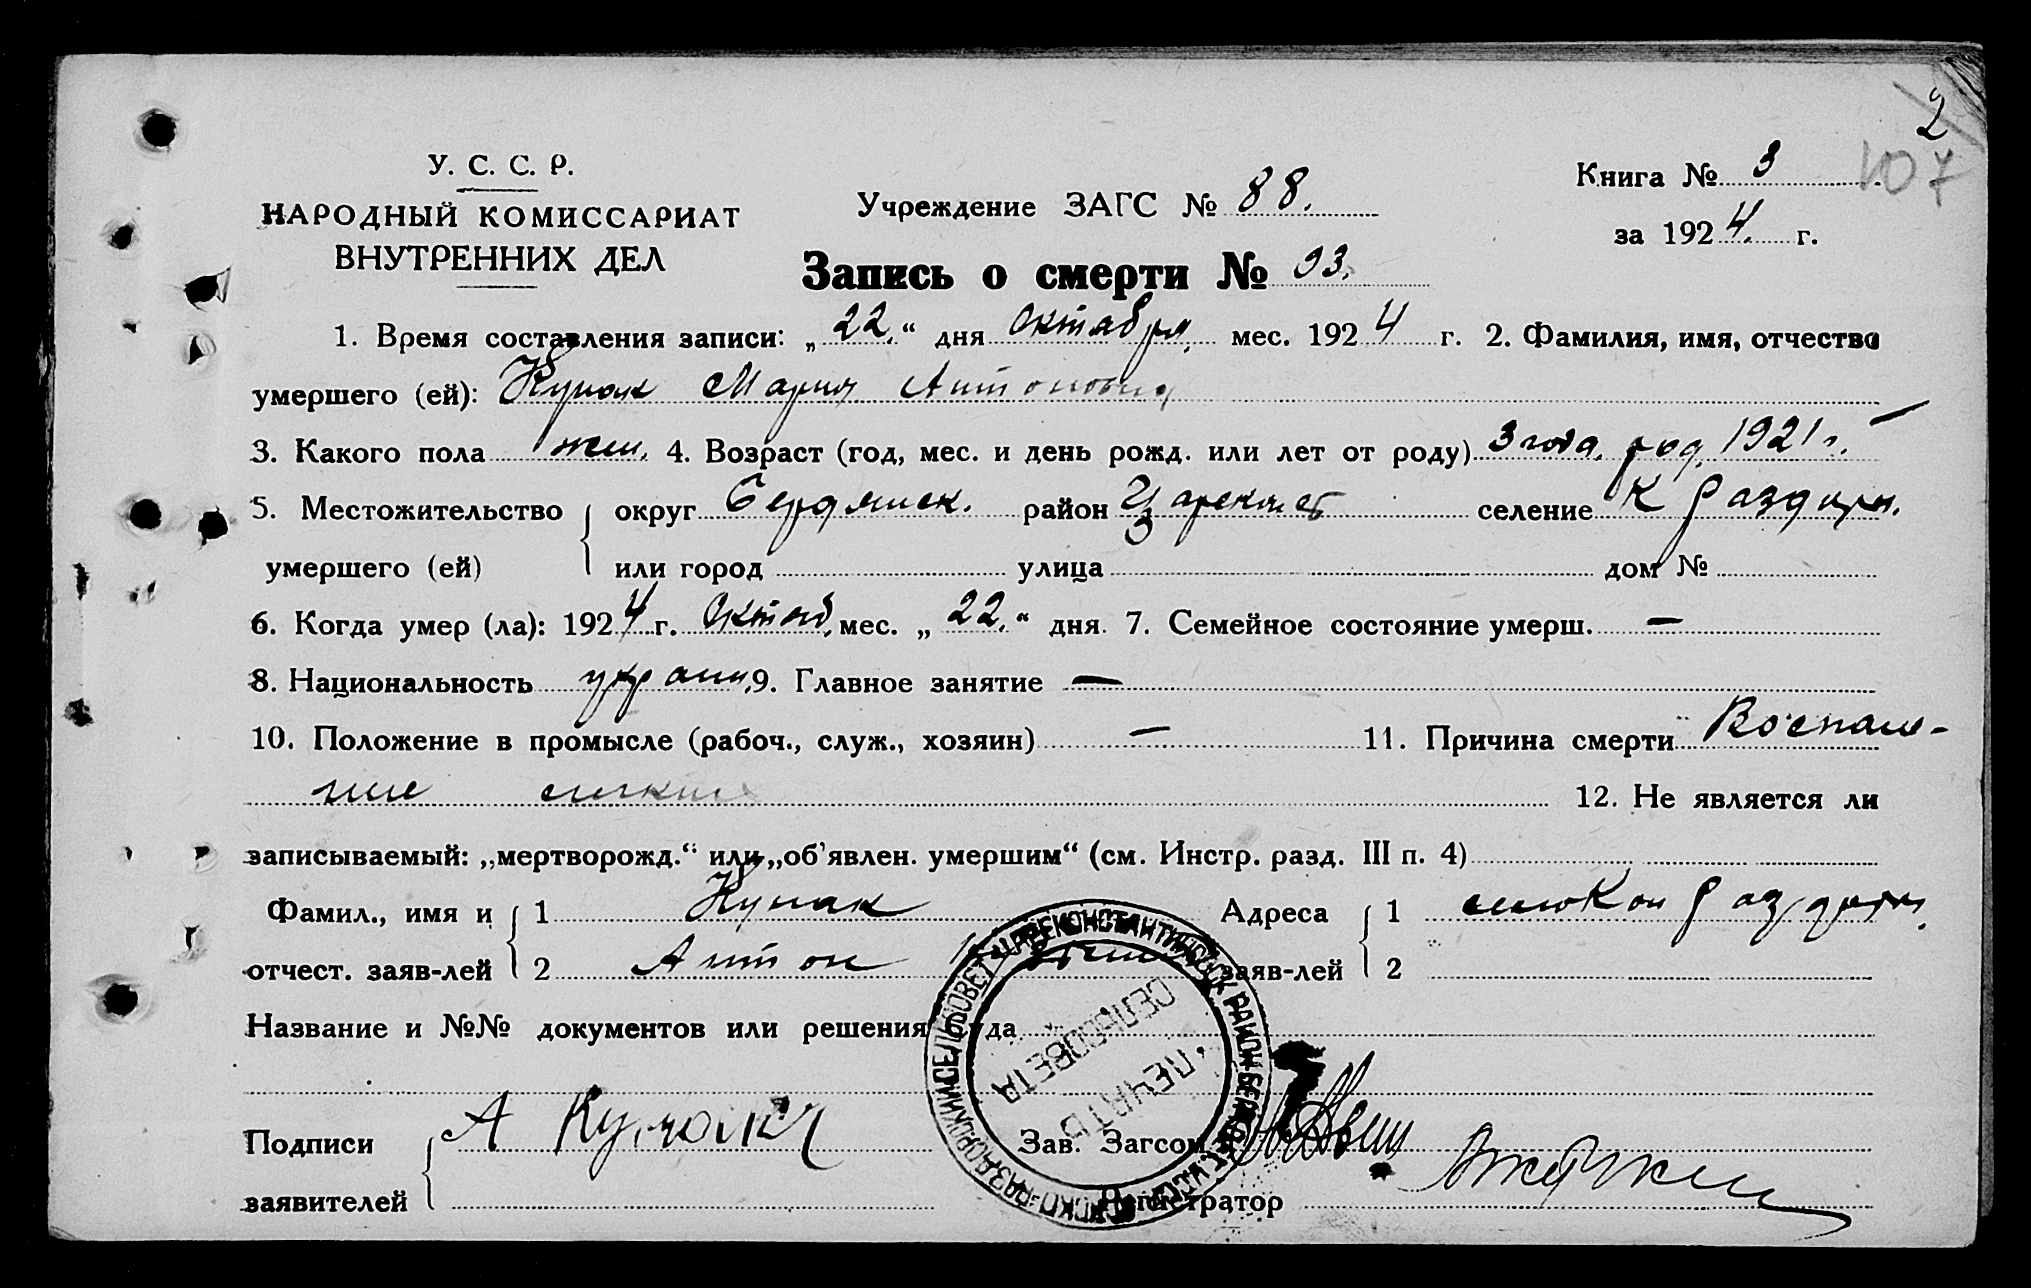 2
107
У. С. С. Р.
НАРОДНЫЙ КОМИССАРИАТ
ВНУТРЕННИХ ДЕЛ
Учреждение ЗАГС № 88.
Книга № 3
за 1924. г.
Запись о смерти № 93.
1. Время составления записи: „22.“ дня Октября, мес. 1924 г. 2. Фамилия, имя, отчество
умершего (ей): Купак Мария Антоновна
3. Какого пола жен. 4. Возраст (год, мес. и день рожд. или лет от роду) 3 года. род. 1921 г.
5. Местожительство округ Бердянск. район Царекост селение К Раздоры.
умершего (ей) или город улица дом №
6. Когда умер (ла): 1924 г. Октяб. мес. „22.“ дня. 7. Семейное состояние умерш. —
8. Национальность украин. 9. Главное занятие —
10. Положение в промысле (рабоч., служ., хозяин) — 11. Причина смерти Воспале-
ние легких 12. Не является ли
записываемый: „мертворожд.“ или „об'явлен. умершим“ (см. Инстр. разд. III п. 4)
Фамил., имя и 1 Купак Адреса 1 село Кон Раздоры.
отчест. заяв-лей 2 Антон заяв-лей 2
Название и №№ документов или решения суда
Подписи А Купак Зав. Загсом
заявителей Регистратор
ПЕЧАТЬ
СЕЛЬСОВЕТА